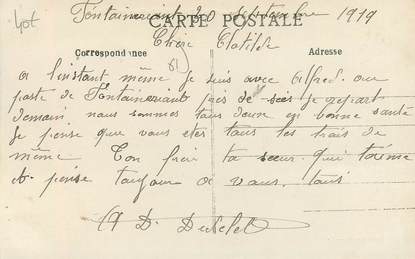 40t
Fontainevrant 20 septembre 1919
CARTE POSTALE
Chère Clotilde
Correspondance
Adresse
a l'instant même je suis avec Alfred au
poste de Fontainevrant près de je repart
demain nous sommes tous deux en bonne santé
Je pense que vous etes tous les trois de
même Ton frère ta soeur qui
et pense toujour a vous tous
A D.